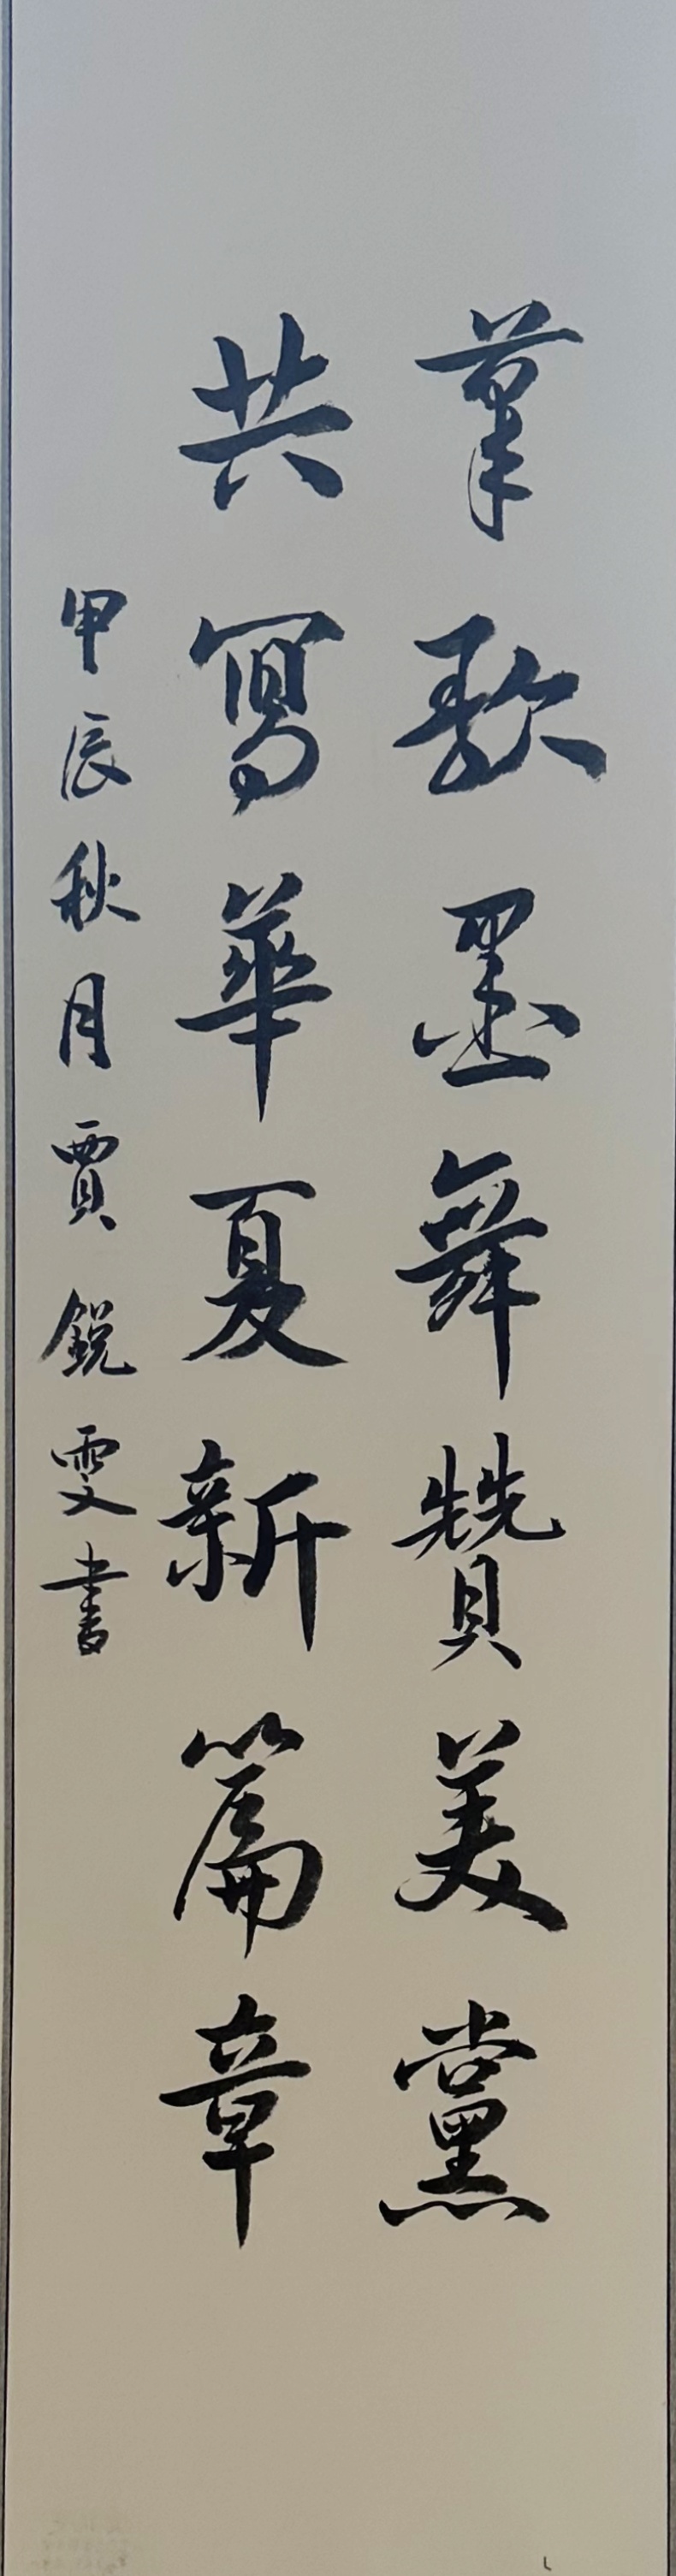 筆歌墨舞贊美黨
共寫華夏新篇章
甲辰秋月賈銳雯書